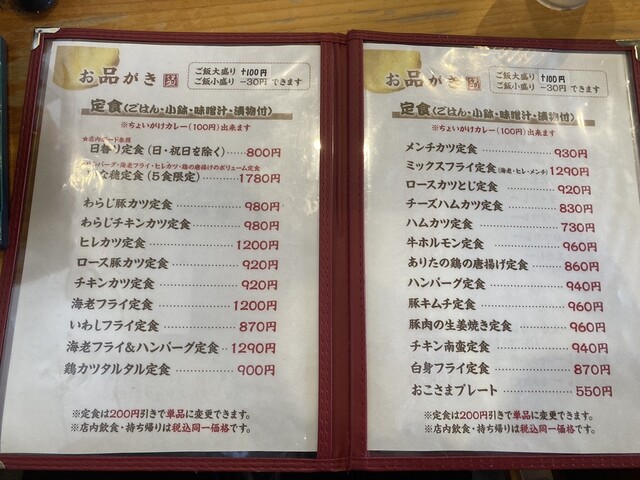 お品がき
ご飯大盛り +100円
ご飯小盛り −30円 できます
定食(ごはん・小鉢・味噌汁・漬物付)
※ちょいがけカレー(100円)出来ます
日替り定食(日・祝日を除く)……800円
ハンバーグ・海老フライ・ヒレカツ・鶏の唐揚げのボリューム定食
定食(5食限定)……1780円
わらじ豚カツ定食……980円
わらじチキンカツ定食……980円
ヒレカツ定食……1200円
ロース豚カツ定食……920円
チキンカツ定食……920円
海老フライ定食……1200円
いわしフライ定食……870円
海老フライ&ハンバーグ定食…1290円
鶏カツタルタル定食……900円
※定食は200円引きで単品に変更できます。
※店内飲食・持ち帰りは税込同一価格です。
お品がき
ご飯大盛り +100円
ご飯小盛り −30円 できます
定食(ごはん・小鉢・味噌汁・漬物付)
※ちょいがけカレー(100円)出来ます
メンチカツ定食……930円
ミックスフライ定食(海老・ヒレ・メンチ)1290円
ロースカツとじ定食……920円
チーズハムカツ定食……830円
ハムカツ定食……730円
牛ホルモン定食……960円
ありたの鶏の唐揚げ定食……860円
ハンバーグ定食……940円
豚キムチ定食……960円
豚肉の生姜焼き定食……960円
チキン南蛮定食……940円
白身フライ定食……870円
おこさまプレート……550円
※定食は200円引きで単品に変更できます。
※店内飲食・持ち帰りは税込同一価格です。